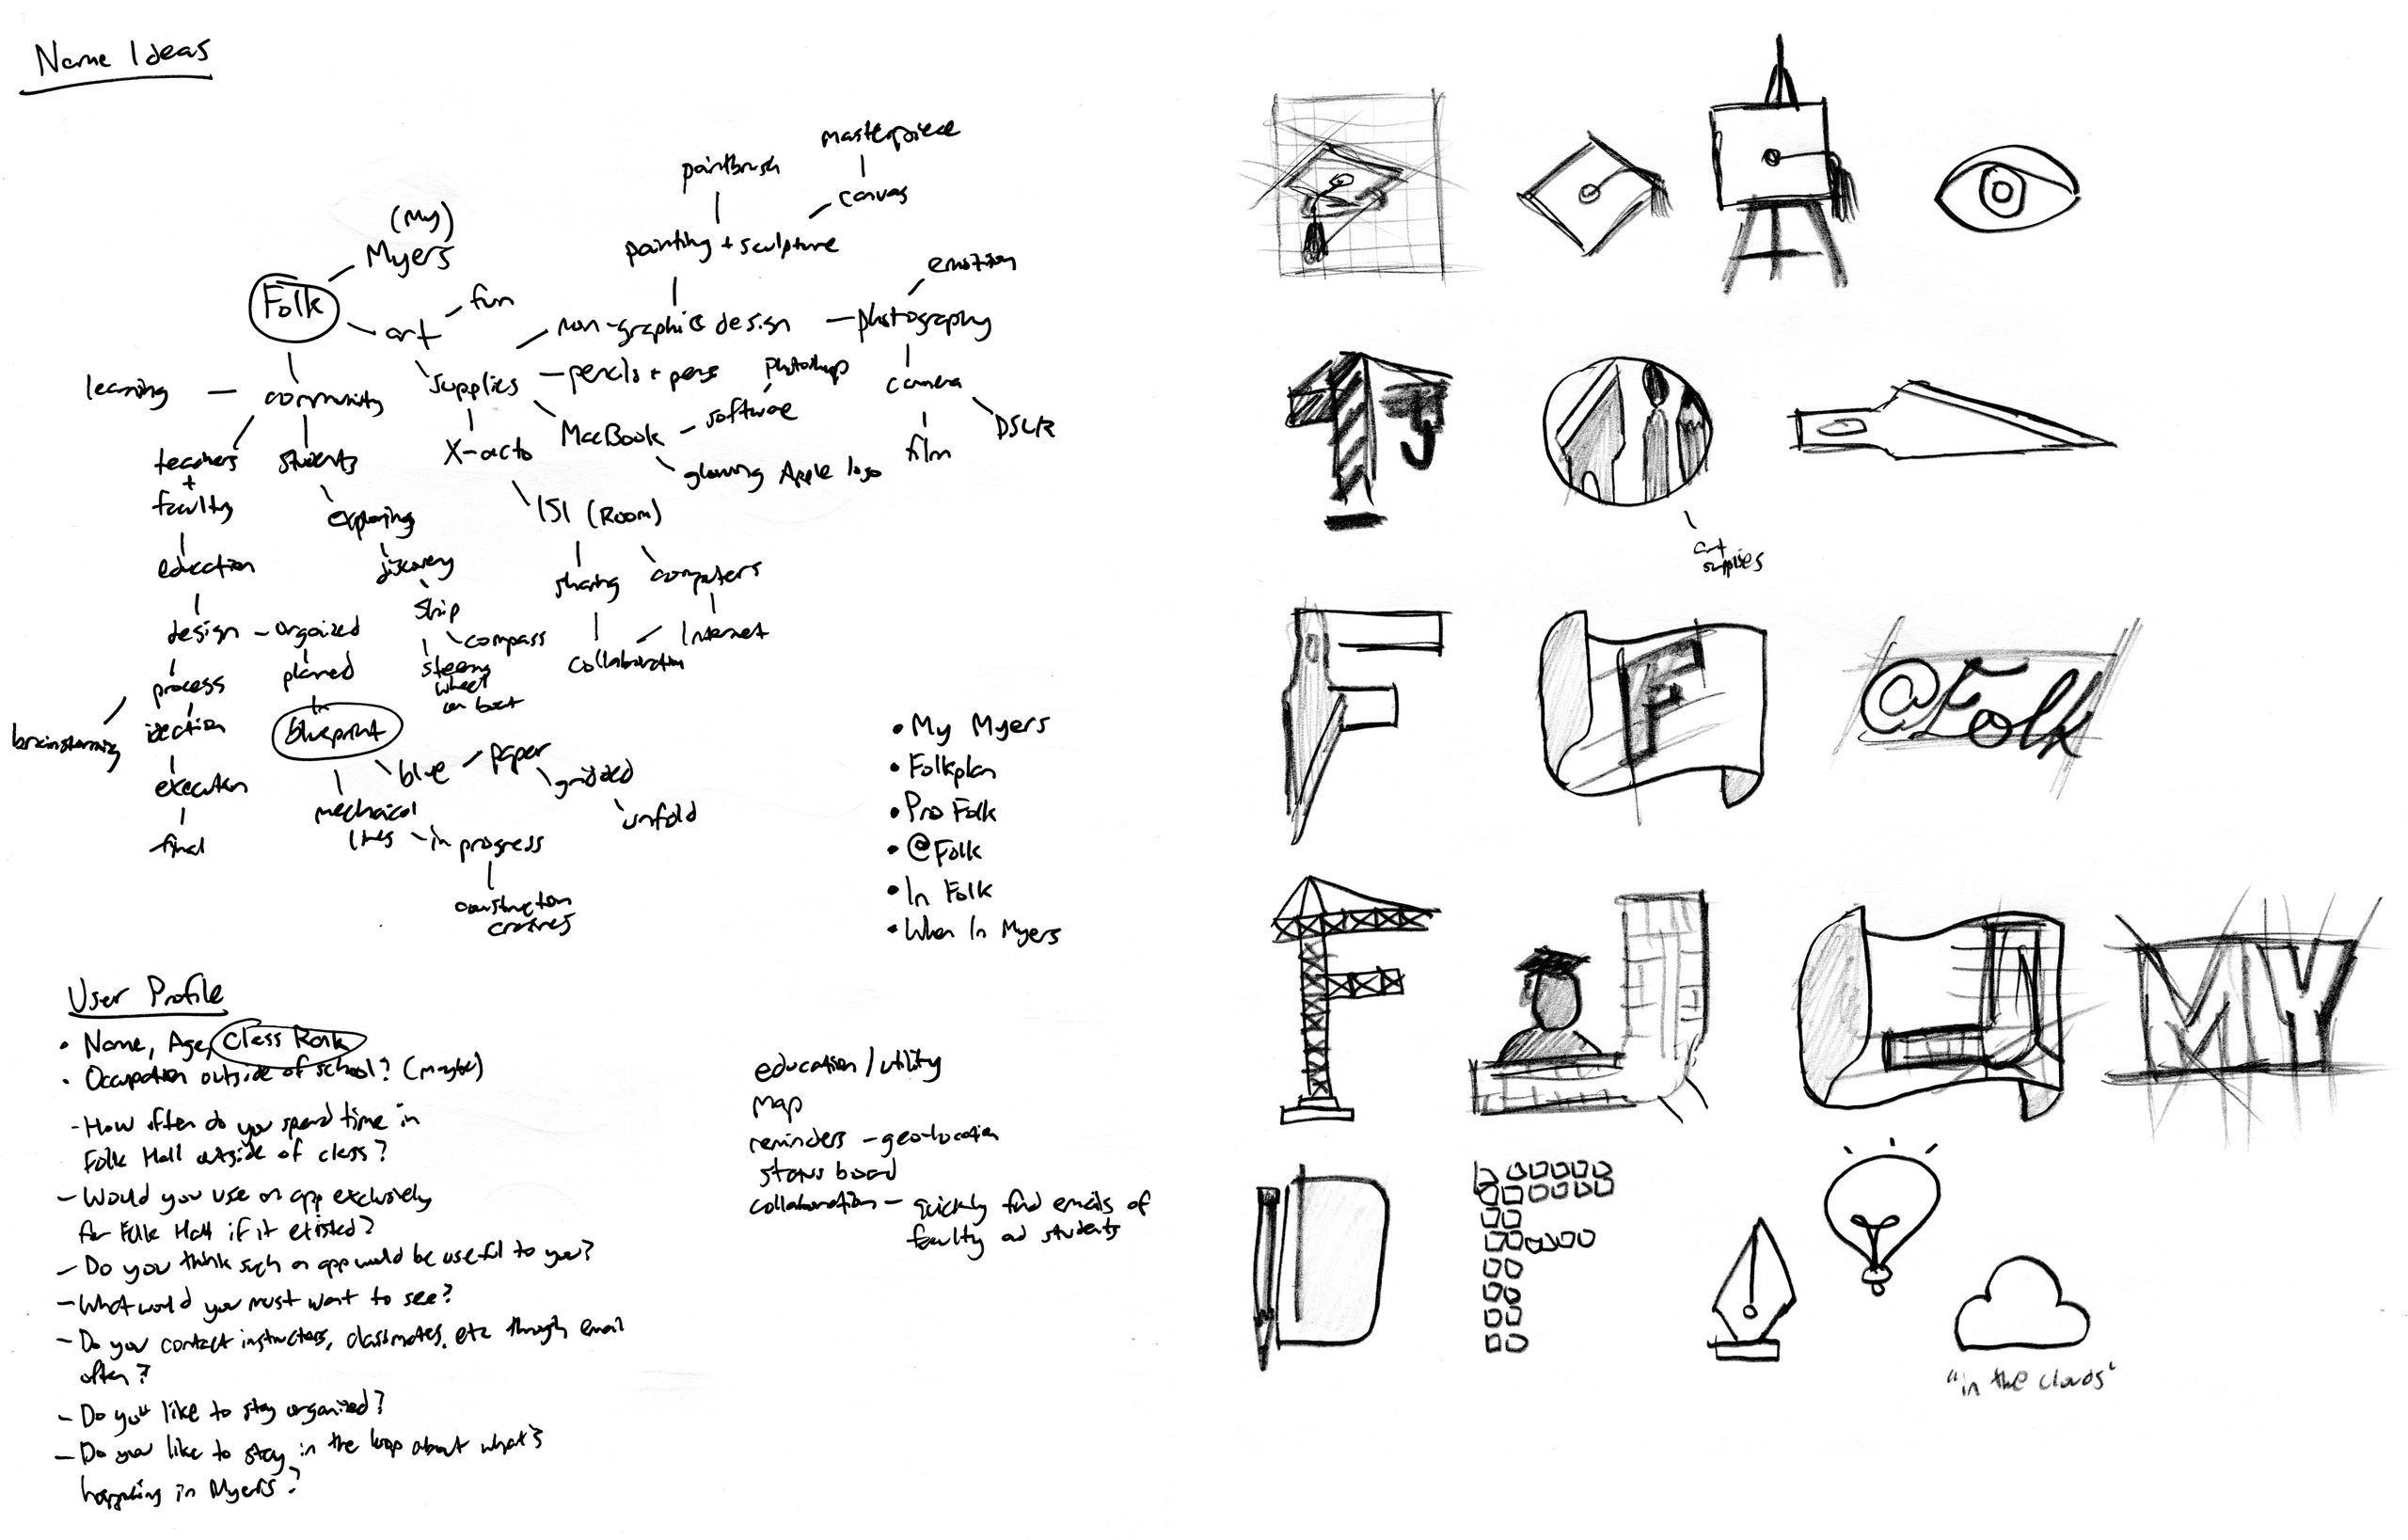 Name Ideas
masterpiece
paintbrush
canvas
(My)
Myers
painting + sculpture
emotion
Folk
fun
art
non-graphic design
photography
learning
community
supplies
pencils + pens
photoshop
camera
software
DSLR
teachers
+
faculty
students
X-acto
MacBook
film
glowing Apple logo
exploring
151 (Room)
education
discovery
sharing
computers
ship
design
orgaized
compass
Internet
planned
steering
wheel
on boat
collaboration
process
brainstorming
ideation
blueprint
blue
paper
gridded
execution
mechaical
lines
in progress
unfold
final
construction
cranes
• My Myers
• Folkplan
• Pro Folk
• @Folk
• In Folk
• When In Myers
User Profile
• Name, Age, Class Rank
• Occupation outside of school? (maybe)
- How often do you spend time in
Folk Hall outside of class?
- Would you use an app exclusively
for Folk Hall if it existed?
- Do you think such an app would be useful to you?
- What would you most want to see?
- Do you contact instructors, classmates, etc through email
often?
- Do you like to stay organized?
- Do you like to stay in the loop about what's
happening in Myers?
education / utility
map
reminders - geo-location
status board
collaboration - quickly find emails of
faculty ad students
art
supplies
F
F
@Folk
F
MY
F
"in the clouds"